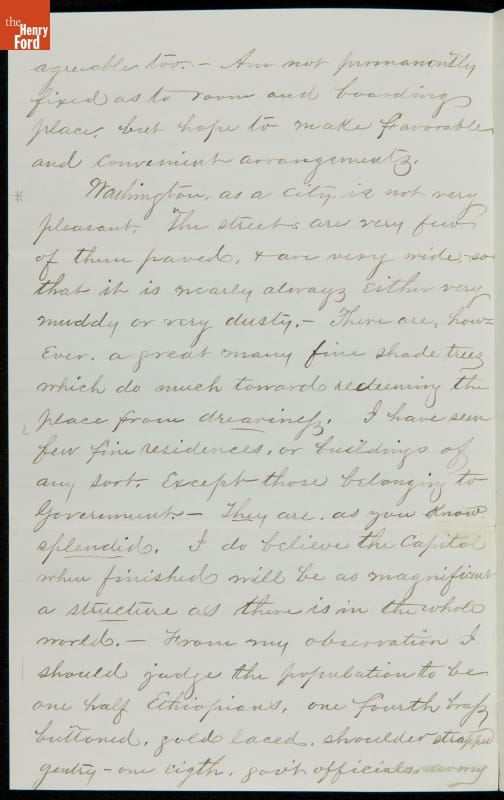 the
Henry
Ford
agreeable too. – Am not permanently
fixed as to room and boarding
place, but hope to make favorable
and convenient arrangements.
Washington, as a city, is not very
pleasant. The streets are very few
of them paved, & are very wide – so
that it is nearly always either very
muddy or very dusty. – There are, how=
ever, a great many fine shade trees
which do much toward redeeming the
place from dreariness. I have seen
few fine residences, or buildings of
any sort, except those belonging to
Government. – They are, as you know
splendid. I do believe the Capitol
when finished will be as magnificent
a structure as there is in the whole
world. – From my observation I
should judge the population to be
one half Ethiopians, one fourth brass
buttoned, gold laced, shoulder strapped
gentry – one eigth, gov't officials, army